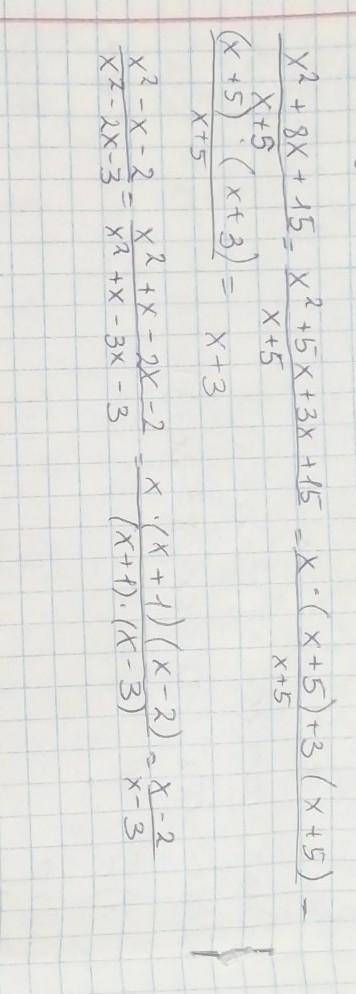 (x² + 8x + 15)/(x+5) = (x² + 5x + 3x + 15)/(x+5) = (x · (x+5) + 3 (x+5))/(x+5) -
((x+5) · (x+3))/(x+5) = x+3
(x² - x - 2)/(x² - 2x - 3) = (x² + x - 2x - 2)/(x² + x - 3x - 3) = (x · (x+1) (x-2))/((x+1) · (x-3)) = (x-2)/(x-3)